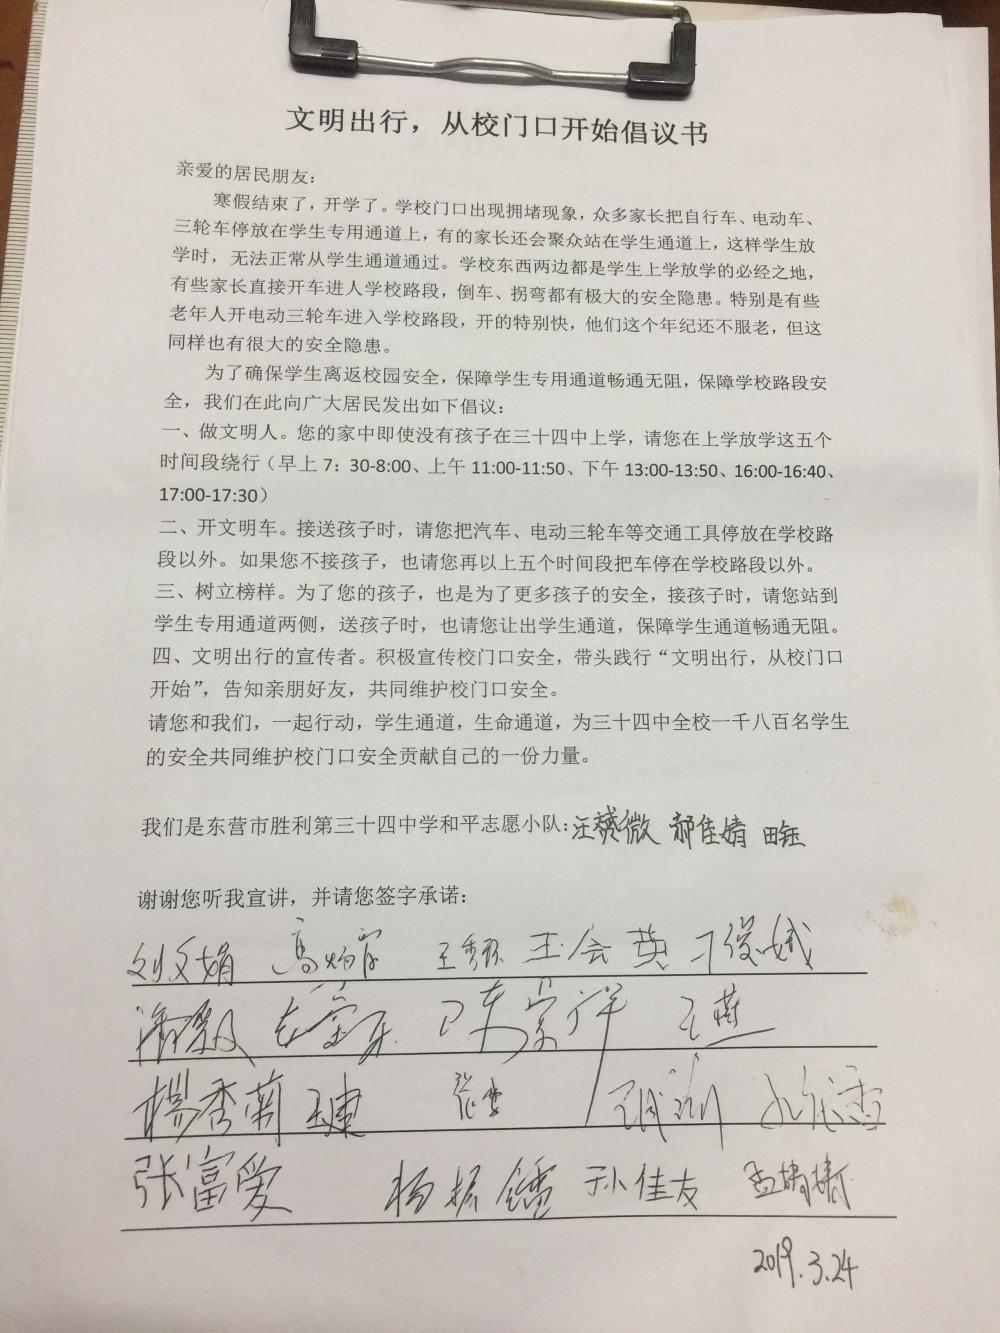 文明出行，从校门口开始倡议书
亲爱的居民朋友：
寒假结束了，开学了。学校门口出现拥堵现象，众多家长把自行车、电动车、
三轮车停放在学生专用通道上，有的家长还会聚众站在学生通道上，这样学生放
学时，无法正常从学生通道通过。学校东西两边都是学生上学放学的必经之地，
有些家长直接开车进人学校路段，倒车、拐弯都有极大的安全隐患。特别是有些
老年人开电动三轮车进入学校路段，开的特别快，他们这个年纪还不服老，但这
同样也有很大的安全隐患。
为了确保学生离返校园安全，保障学生专用通道畅通无阻，保障学校路段安
全，我们在此向广大居民发出如下倡议：
一、做文明人。您的家中即使没有孩子在三十四中上学，请您在上学放学这五个
时间段绕行（早上 7：30-8:00、上午 11:00-11:50、下午 13:00-13:50、16:00-16:40、
17:00-17:30）
二、开文明车。接送孩子时，请您把汽车、电动三轮车等交通工具停放在学校路
段以外。如果您不接孩子，也请您再以上五个时间段把车停在学校路段以外。
三、树立榜样。为了您的孩子，也是为了更多孩子的安全，接孩子时，请您站到
学生专用通道两侧，送孩子时，也请您让出学生通道，保障学生通道畅通无阻。
四、文明出行的宣传者。积极宣传校门口安全，带头践行“文明出行，从校门口
开始”，告知亲朋好友，共同维护校门口安全。
请您和我们，一起行动，学生通道，生命通道，为三十四中全校一千八百名学生
的安全共同维护校门口安全贡献自己的一份力量。
我们是东营市胜利第三十四中学和平志愿小队：汪薇 郝佳婧 田钰
谢谢您听我宣讲，并请您签字承诺：
刘文娟 王会英 刁俊娥
陈崇祥 王燕
杨秀菊 王建
张富爱 杨振 孙佳友 孟婧
2019.3.24